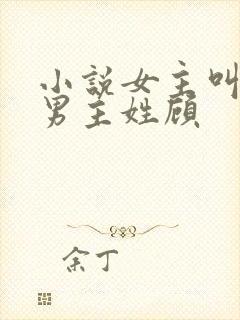 小説女主叫
男主姓顾
余丁